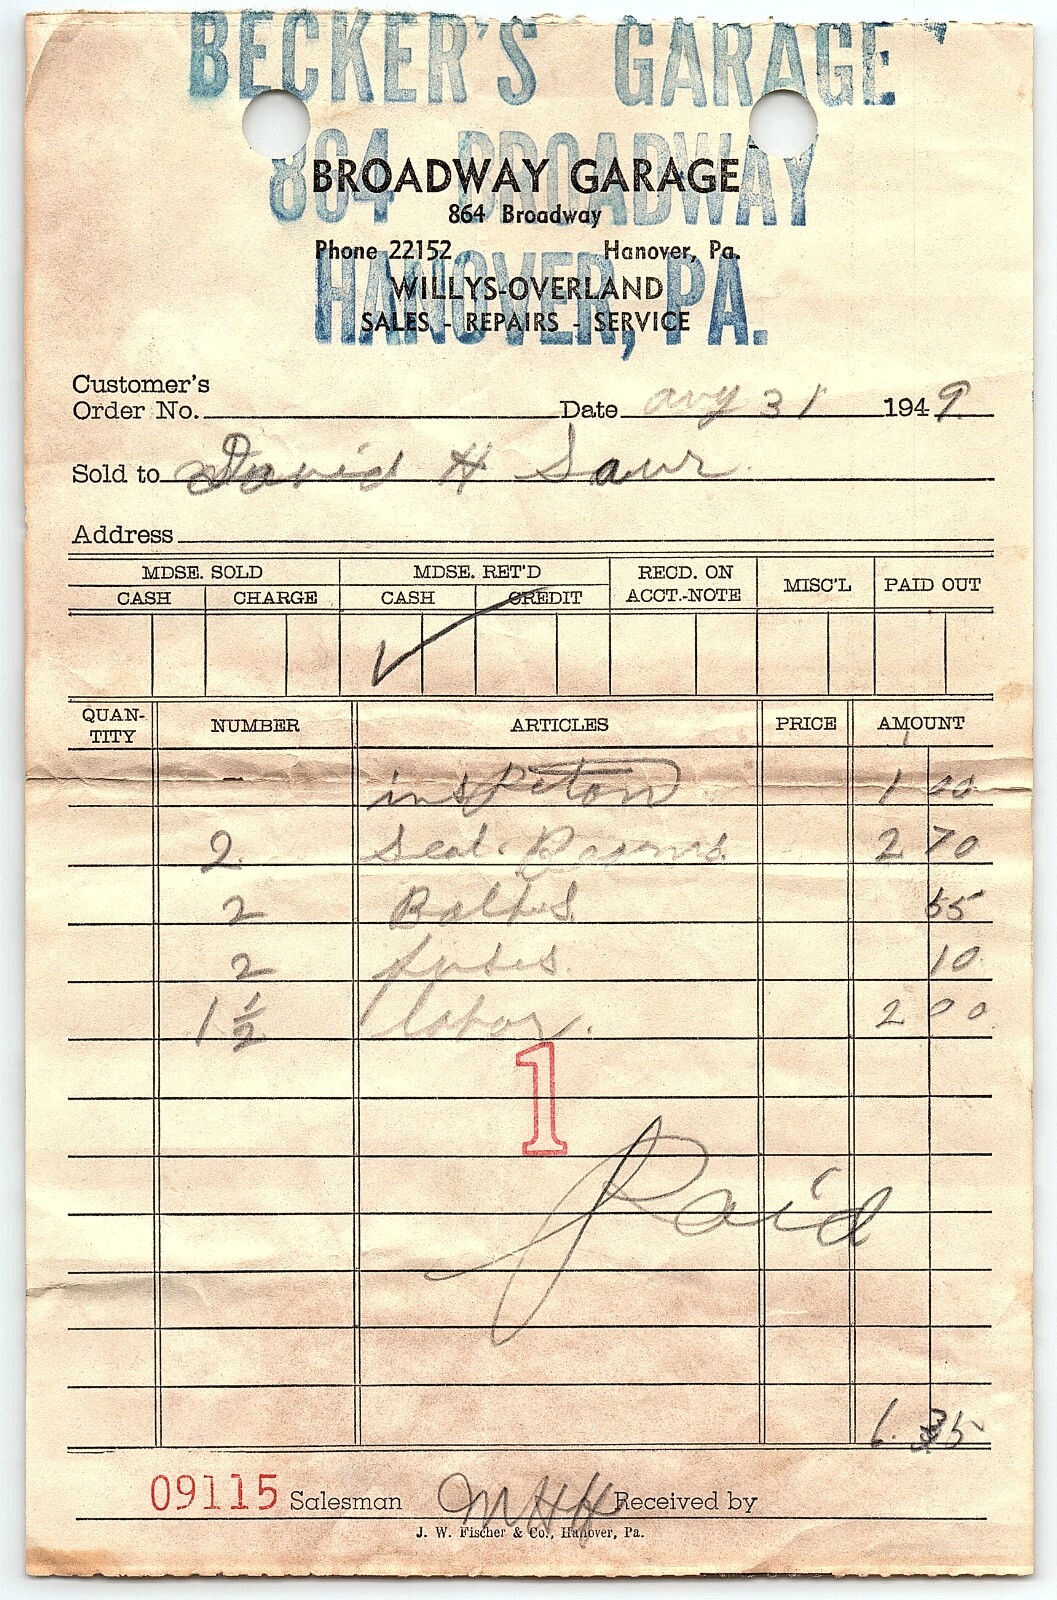 BECKER'S GARAGE
864 BROADWAY
HANOVER, PA.
BROADWAY GARAGE
864 Broadway
Phone 22152 Hanover, Pa.
WILLYS-OVERLAND
SALES - REPAIRS - SERVICE
Customer's
Order No. Date aug 31 1949
Sold to David H Saur
Address
MDSE. SOLD MDSE. RET'D RECD. ON ACCT.-NOTE MISC'L PAID OUT
CASH CHARGE CASH CREDIT
QUAN-TITY NUMBER ARTICLES PRICE AMOUNT
inspeton 1 00
2 Seal Beams 2 70
2 Bolts 55
2 fuses 10
1 1/2 labor 2 00
1
Paid
6.35
09115 Salesman MHH Received by
J. W. Fischer & Co., Hanover, Pa.